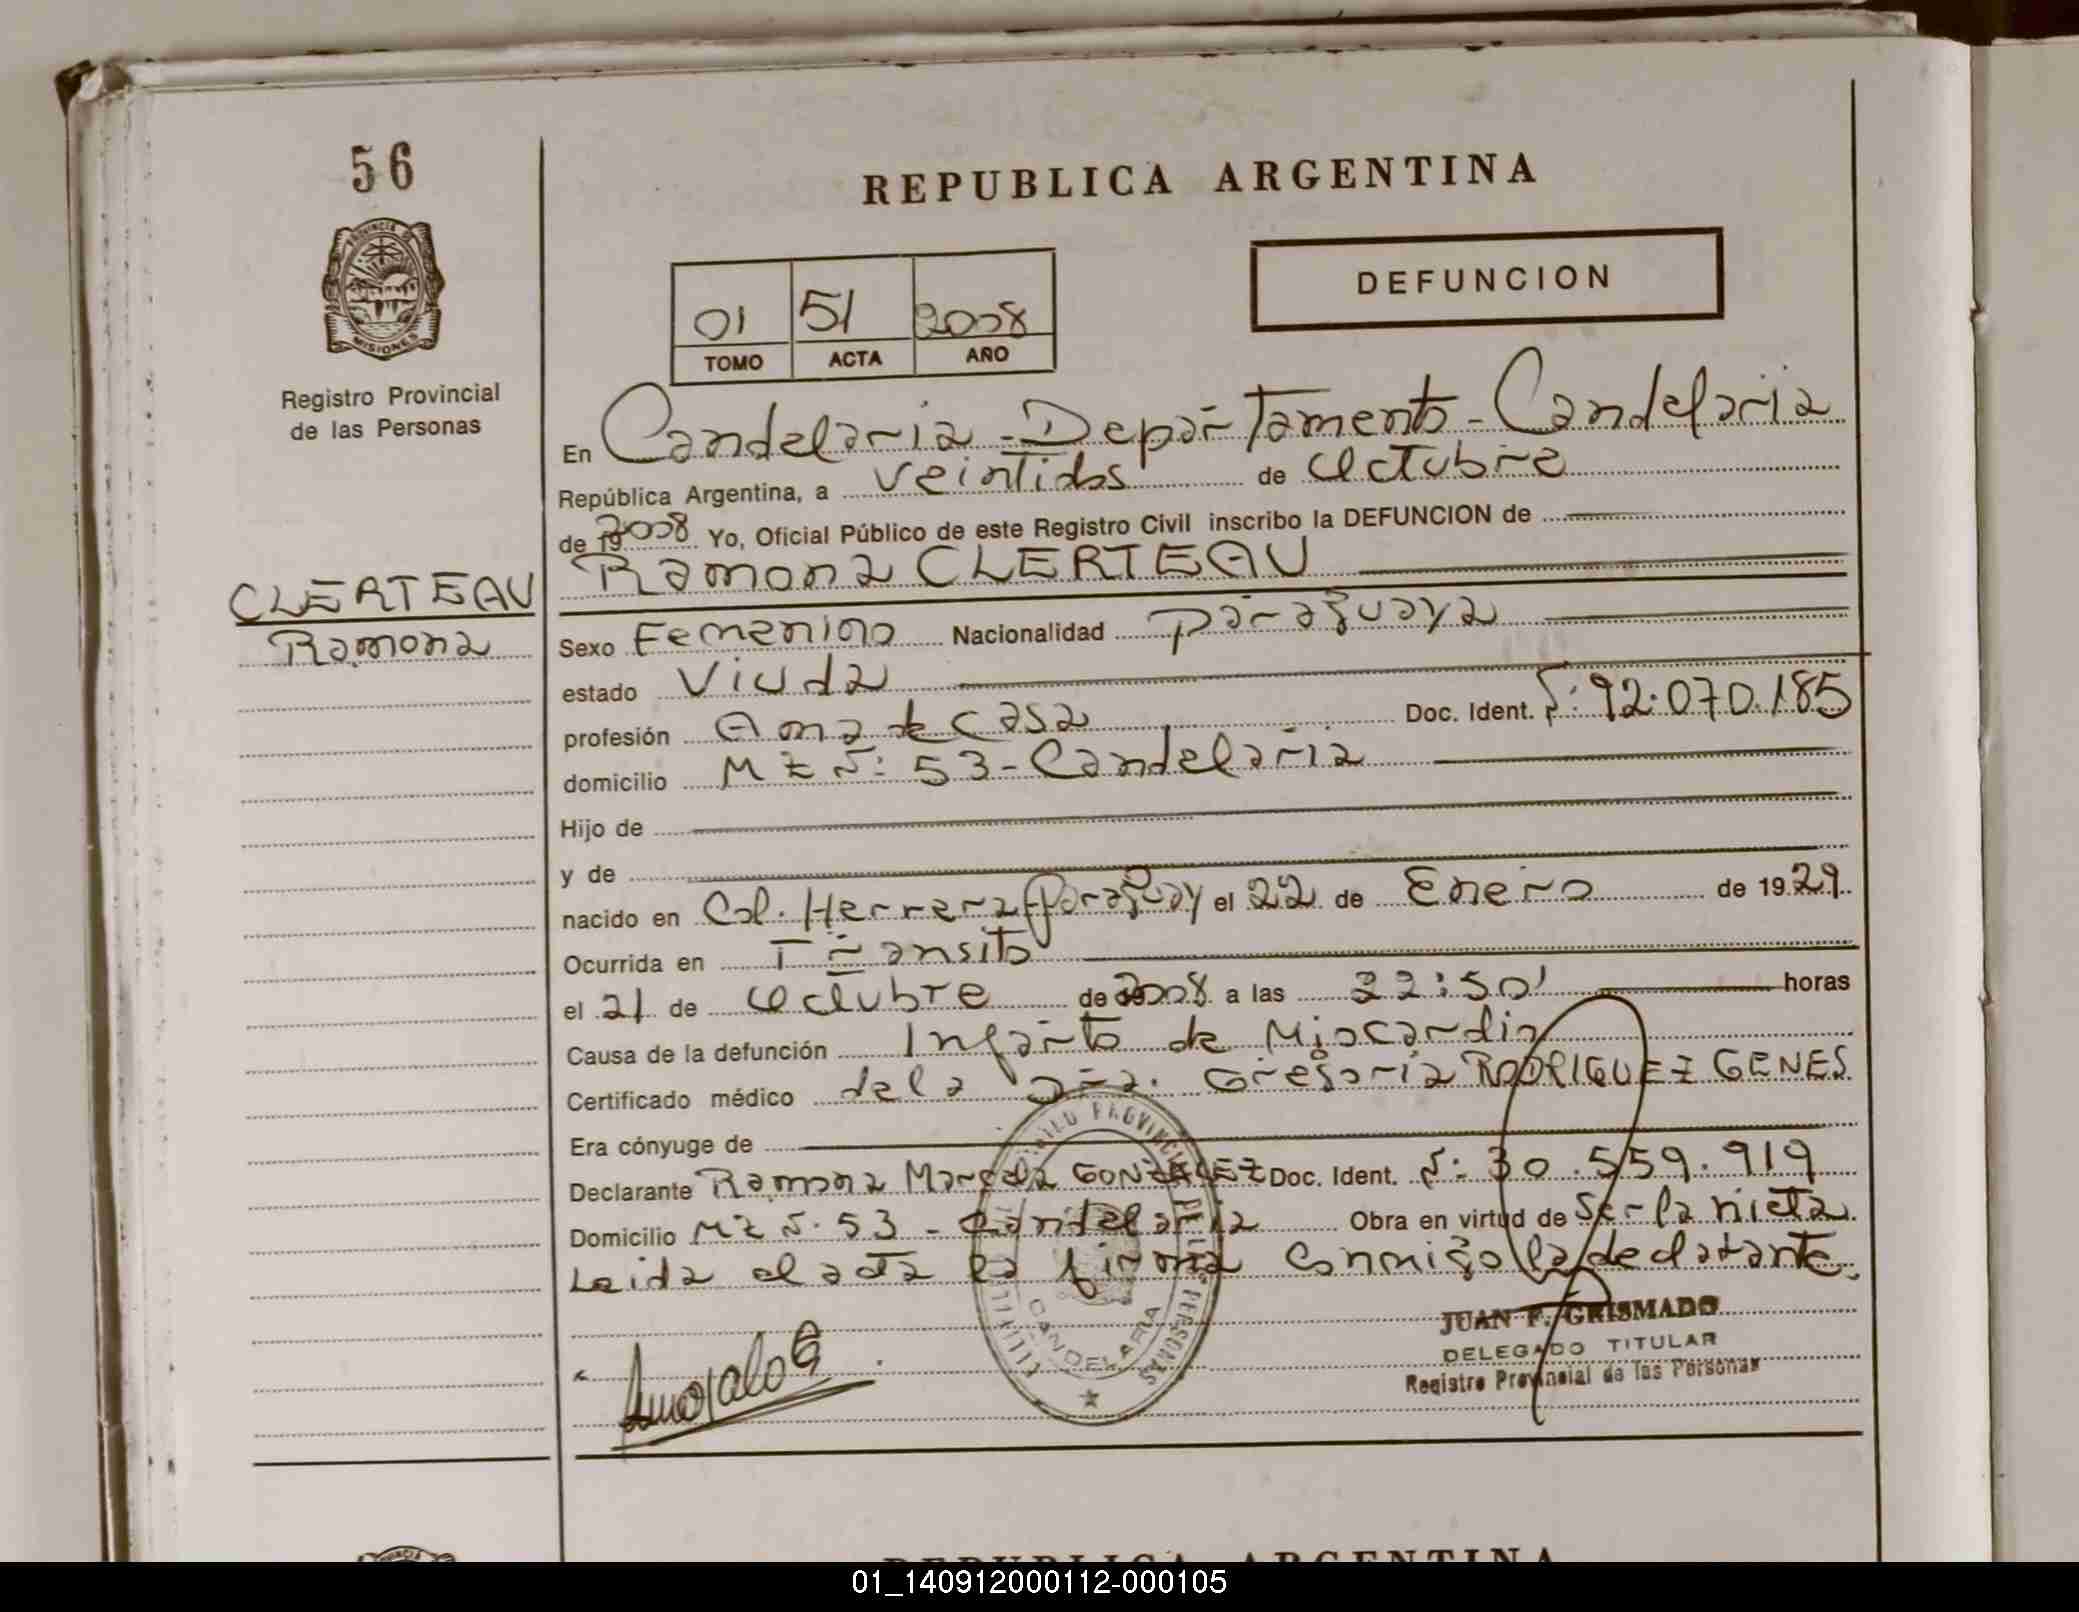 56
REPUBLICA ARGENTINA
PROVINCIA DE
MISIONES
Registro Provincial
de las Personas
DEFUNCION
01 51 2008
TOMO ACTA AÑO
En Candelaria - Departamento - Candelaria
República Argentina, a veintidos de Octubre
de 19 2008 Yo, Oficial Público de este Registro Civil inscribo la DEFUNCION de
CLERTEAU
Ramona
Ramona CLERTEAU
Sexo Femenino Nacionalidad paraguaya
estado Viuda
profesión Ama de casa Doc. Ident. Nº: 92.070.185
domicilio Mz Nº: 53 - Candelaria
Hijo de
y de
nacido en Col. Herrera-Paraguay el 22 de Enero de 1929.
Ocurrida en Transito
el 21 de Octubre de 2008 a las 22:50' horas
Causa de la defunción Infarto de Miocardio
Certificado médico de la Dra. Gregoria RODRIGUEZ GENES
Era cónyuge de
Declarante Ramona Marcela GONZALEZ Doc. Ident. Nº: 30.559.919
Domicilio Mz Nº. 53 - Candelaria Obra en virtud de ser la nieta.
Leida el acta la firma conmigo la declarante.
CANDELARIA
JUAN F. GRISMADO
DELEGADO TITULAR
Registro Provincial de las Personas
REPUBLICA ARGENTINA
01_140912000112-000105